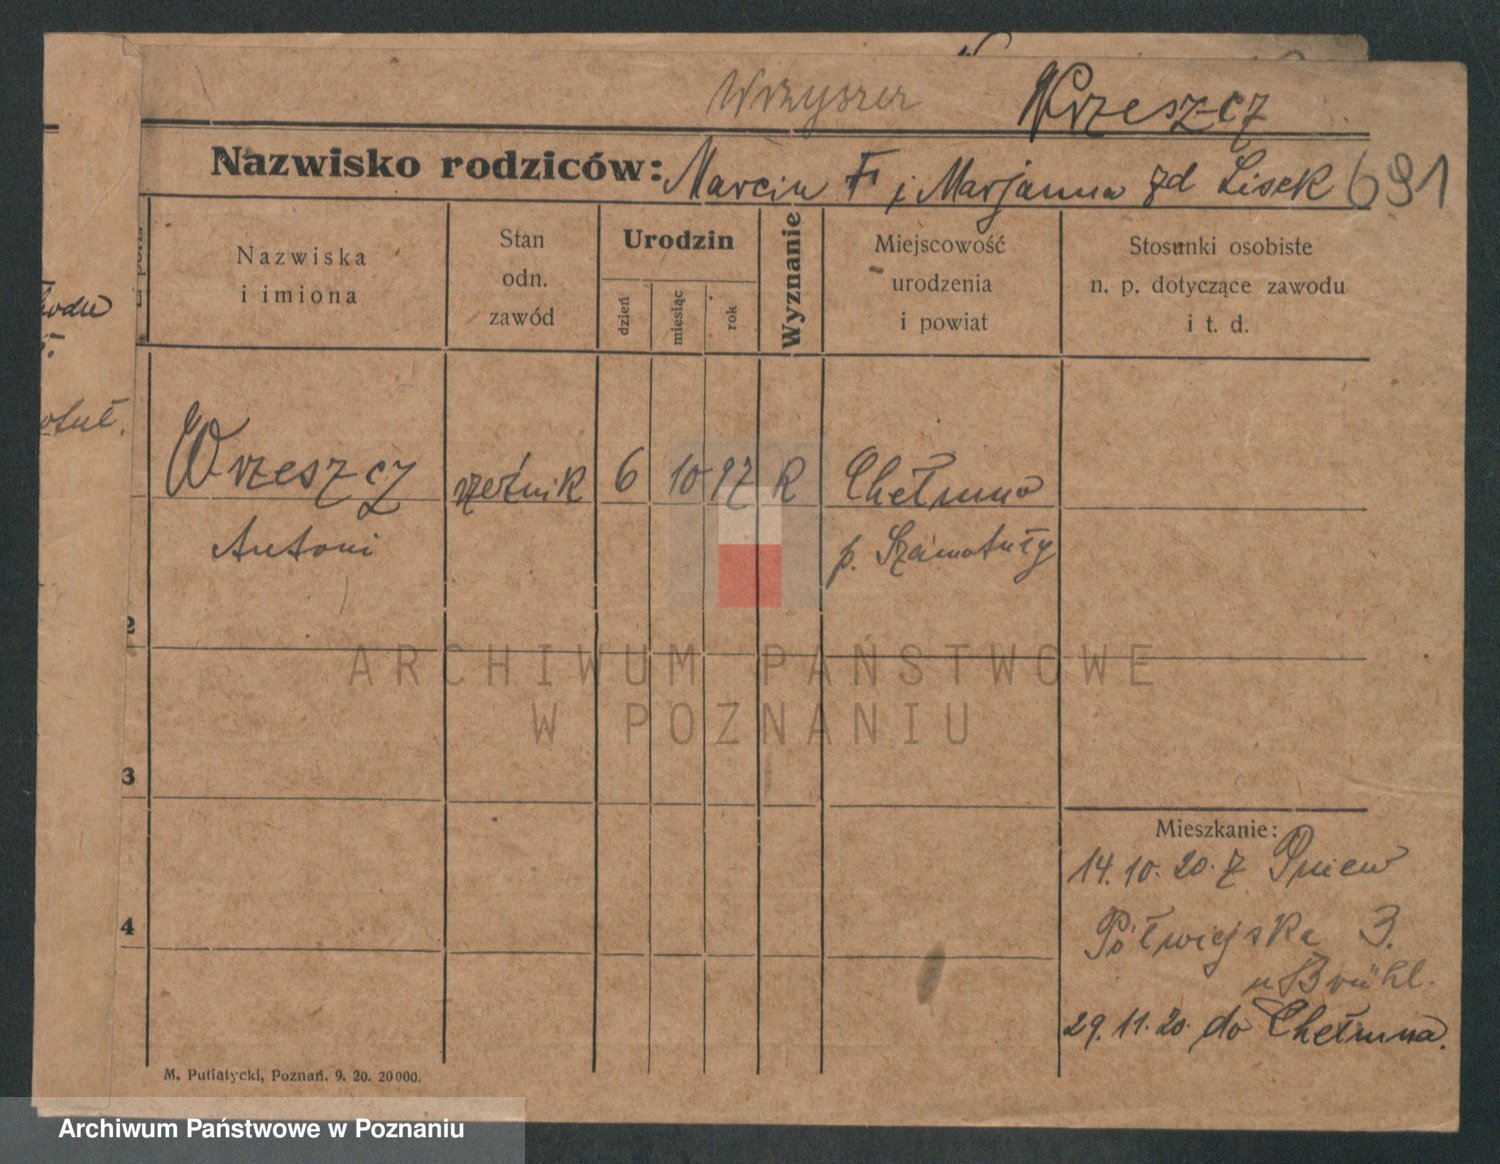 Wrzyszez Wrzeszcz
Nazwisko rodziców: Marcin i Marjanna zd Lisek 691
Nazwiska i imiona
Stan odn. zawód
Urodzin
dzień
miesiąc
rok
Wyznanie
Miejscowość urodzenia i powiat
Stosunki osobiste n. p. dotyczące zawodu i t. d.
Wrzeszcz rzeźnik 6 10 97 K Chełmno
Antoni p. Szamotuły
2
3
4
Mieszkanie:
14.10.20. z Pniew
Półwiejska 3.
u Brühl.
29.11.20. do Chełmna.
M. Putiatycki, Poznań. 9. 20. 20000.
ARCHIWUM PAŃSTWOWE
W POZNANIU
Archiwum Państwowe w Poznaniu